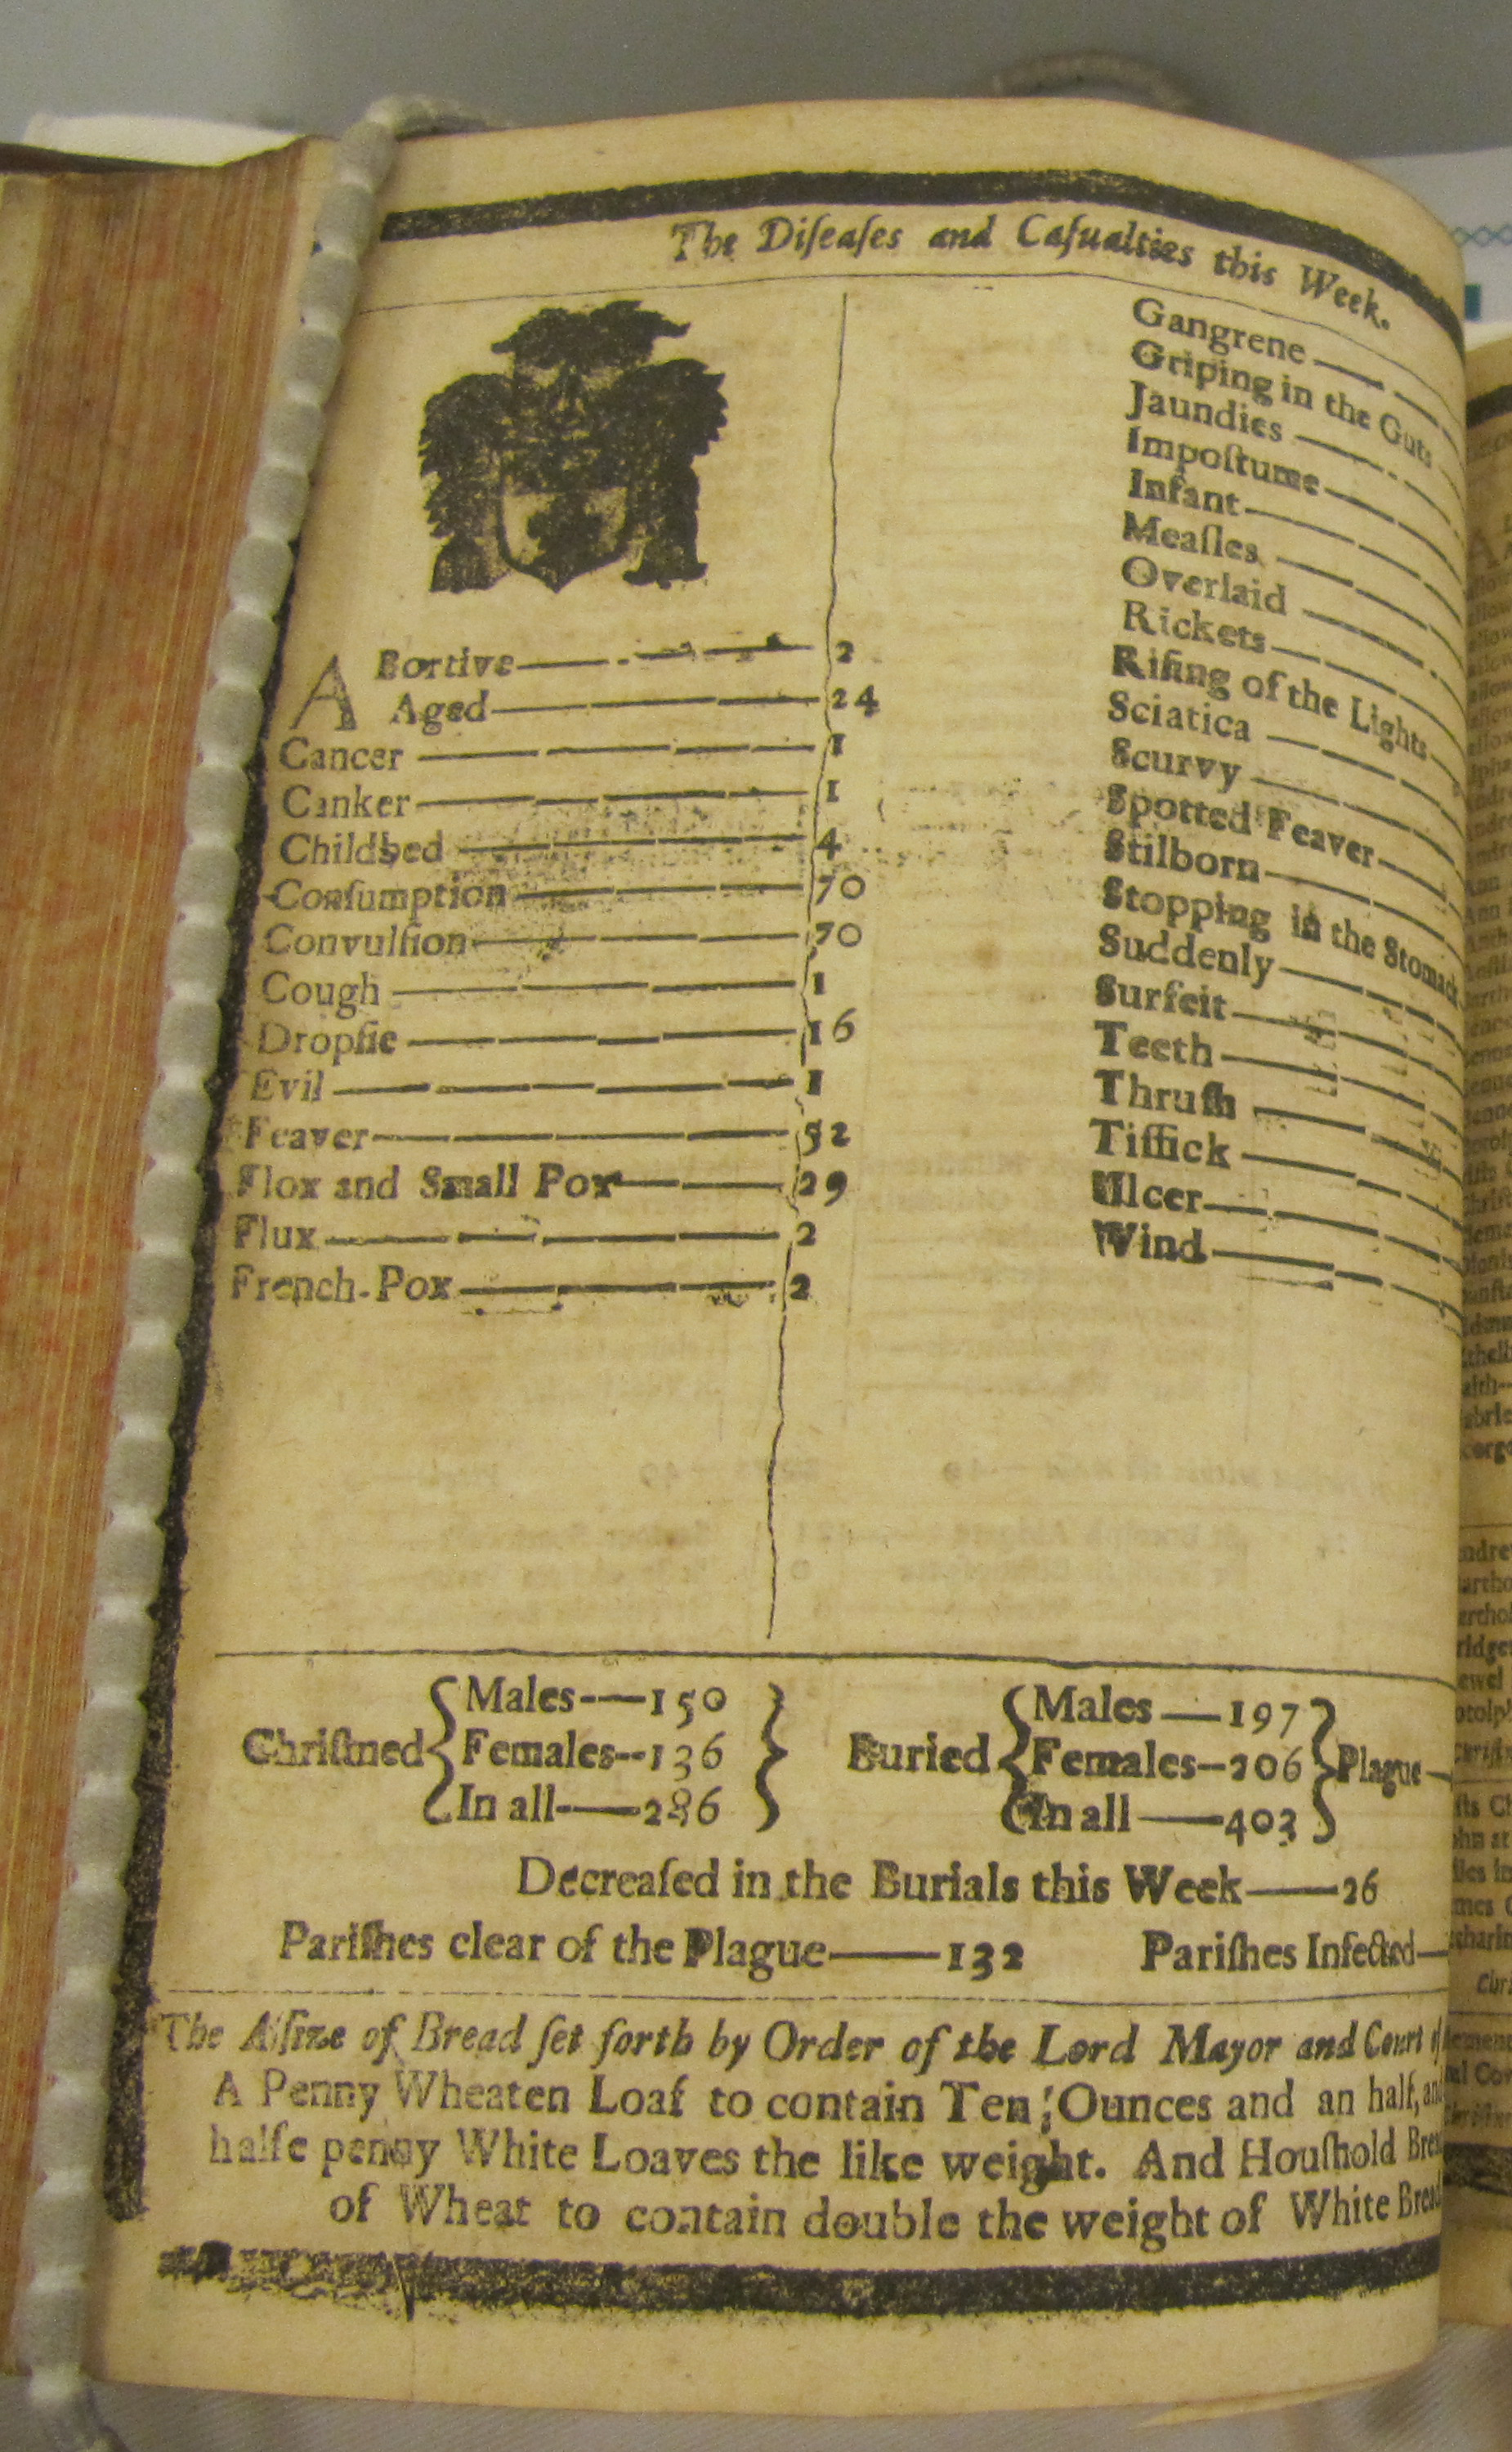 The Diſeaſes and Caſualties this Week.
ABortive 2
Aged 24
Cancer 1
Canker 1
Childbed 4
Conſumption 70
Convulſion 70
Cough 1
Dropſie 16
Evil 1
Feaver 52
Flox and Small Pox 29
Flux 2
French-Pox 2
Gangrene
Griping in the Guts
Jaundies
Impoſtume
Infant
Meaſles
Overlaid
Rickets
Riſing of the Lights
Sciatica
Scurvy
Spotted Feaver
Stilborn
Stopping in the Stomach
Suddenly
Surfeit
Teeth
Thruſh
Tiſſick
Ulcer
Wind
Chriſtned
Males 150
Females 136
In all 286
Buried
Males 197
Females 206
In all 403
Plague
Decreaſed in the Burials this Week 26
Pariſhes clear of the Plague 132 Pariſhes Infected
The Aſſize of Bread ſet forth by Order of the Lord Mayor and Court of
A Penny Wheaten Loaf to contain Ten Ounces and an half, and
halfe penny White Loaves the like weight. And Houſhold
of Wheat to contain double the weight of White Bread